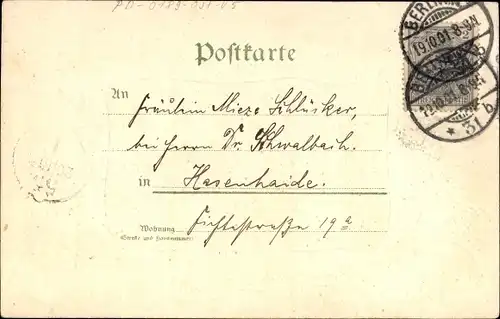 PD-0189-031-05
Postkarte
BERLIN
19.10.01. 8-9N.
* 31 b
An
Fräulein Mieze Schlüsker,
bei Herrn Dr. Schwalbach.
in
Hasenhaide.
Wohnung
(Straße und Hausnummer)
Fichtestraße 19 a